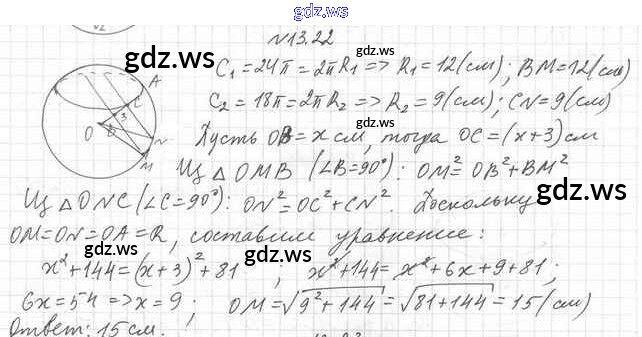 gdz.ws
N13.22
gdz.ws
gdz.ws
C₁=24π=2πR₁=>R₁=12(см); BM=12(см)
C₂=18π=2πR₂=>R₂=9(см); CN=9(см)
Пусть OB=x см, тогда OC=(x+3)см
Из △OMB (∠B=90°): OM²=OB²+BM²
gdz.ws
Из △ONC (∠C=90°): ON²=OC²+CN². Поскольку
OM=ON=OA=R, составим уравнение:
gdz.ws
gdz.ws
x²+144=(x+3)²+81 ; x²+144=x²+6x+9+81;
6x=54=>x=9; OM=√9²+144=√81+144=15(см)
gdz.ws
Ответ: 15см.
A
C
3
O
B
N
M